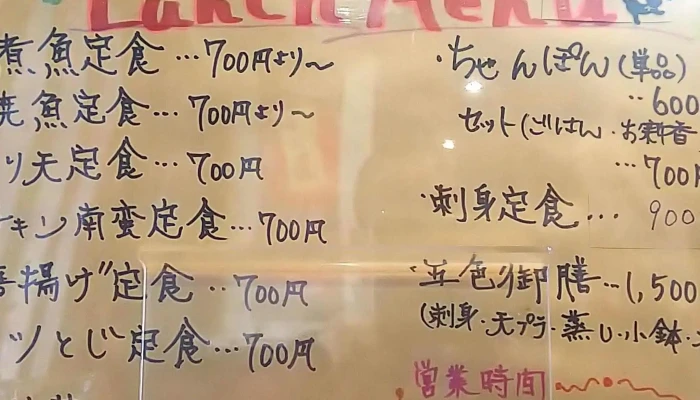 Lunch Menu
煮魚定食…700円より〜
焼魚定食…700円より〜
り天定食…700円
キン南蛮定食…700円
揚げ定食…700円
ツとじ定食…700円
・ちゃんぽん(単品)
…600
セット(ごはん・お新香
…700円
・刺身定食…900
・五色御膳…1,500
(刺身・天プラ・蒸し・小鉢・
・営業時間